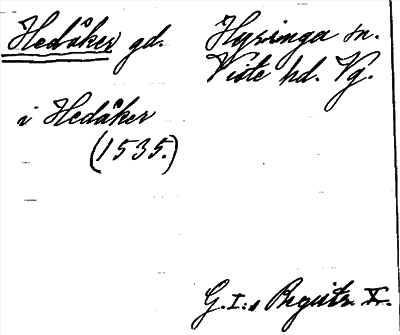 Hedåker gd. Hyringa sn.
Viste hd. Vg.
i Hedåker
(1535.)
G.I:s Registr. X.